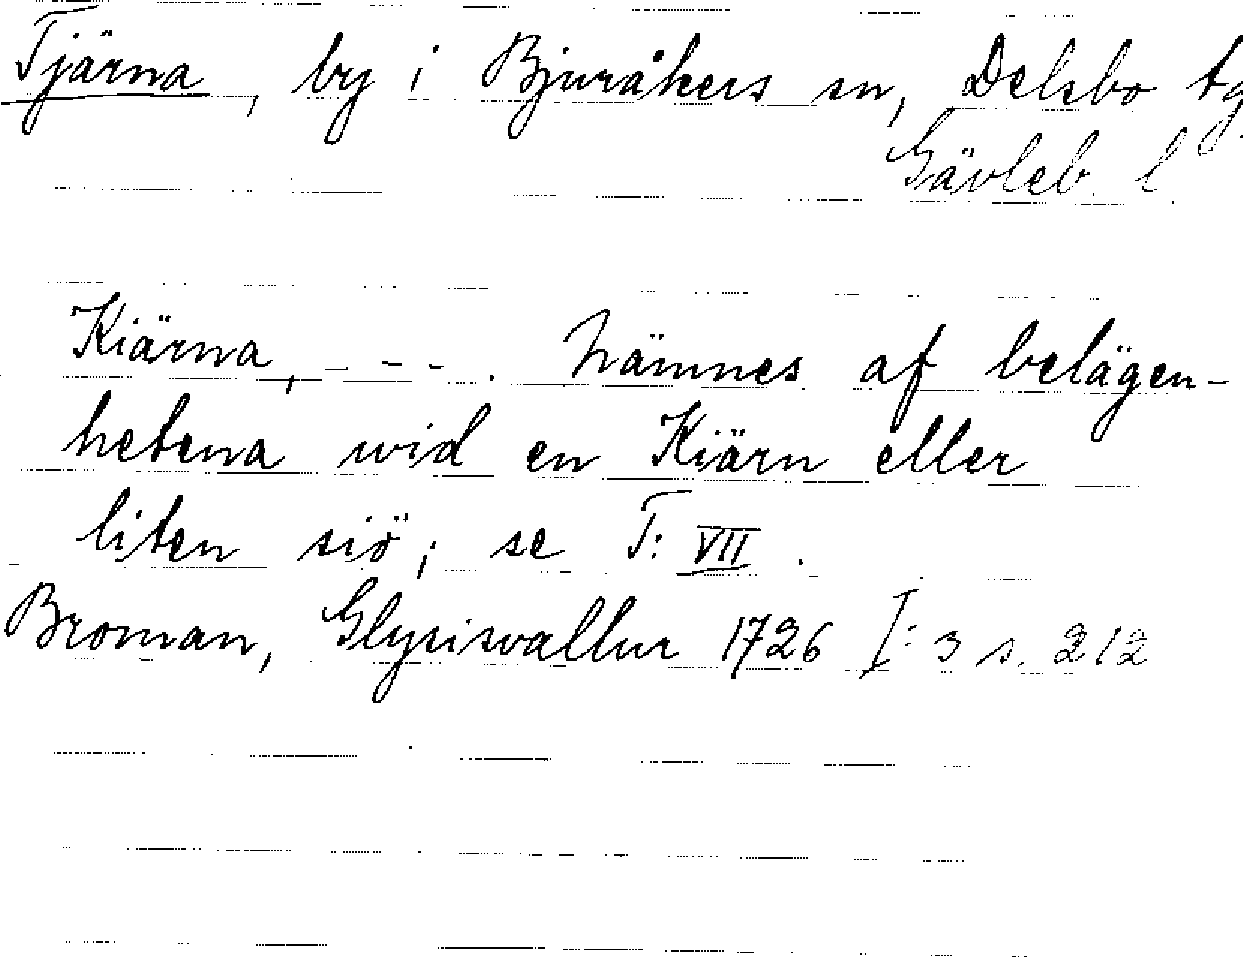 Tjärna, by i Bjuråkers sn, Delsbo tg
Gävleb. l.
Kiärna, - - - . Nämnes af belägen-
hetena wid en Kiärn eller
liten siö; se T: VII .
Broman, Glysisvallur 1726 I: 3 s. 212